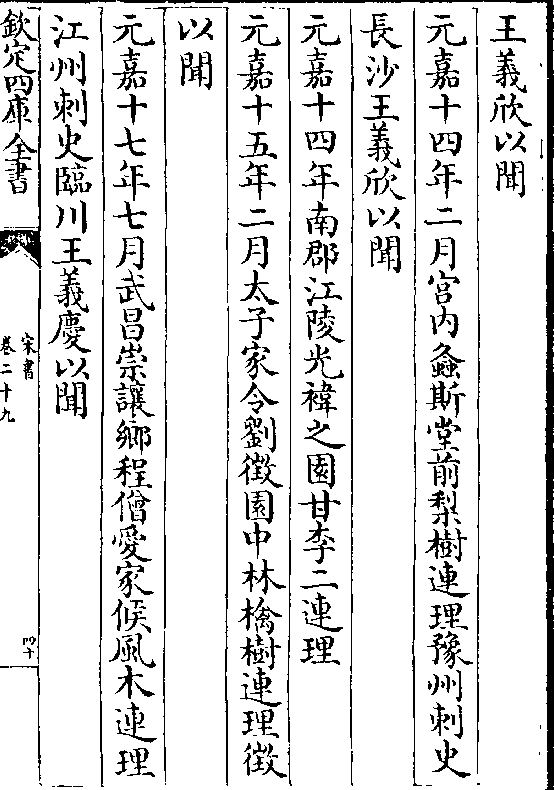 王義欣以聞
元嘉十四年二月宫内螽斯堂前梨樹連理豫州刺史
長沙王義欣以聞
元嘉十四年南郡江陵光褘之園甘李二連理
元嘉十五年二月太子家令劉徴園中林檎樹連理徴
以聞
元嘉十七年七月武昌崇讓鄉程僧愛家候風木連理
江州刺史臨川王義慶以聞
欽定四庫全書
宋書
卷二十九
四十